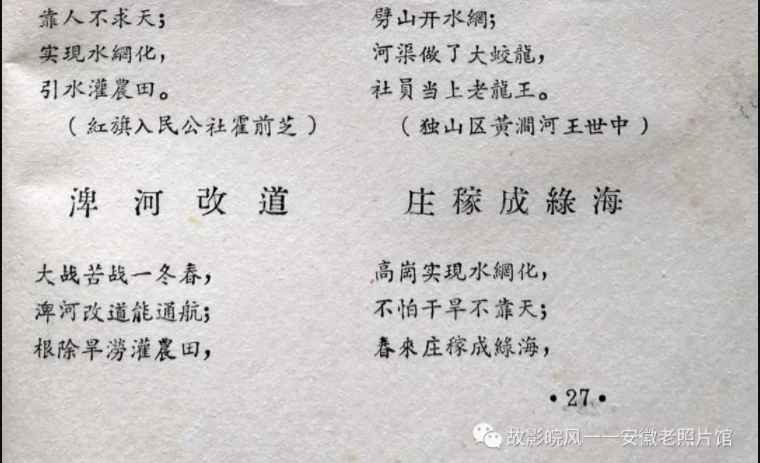 靠人不求天；
实現水網化，
引水灌農田。
（紅旗人民公社霍前芝）
淠河改道
大战苦战一冬春，
淠河改道能通航；
根除旱澇灌農田，
劈山开水網；
河渠做了大蛟龍，
社員当上老龍王。
（独山区黃澗河王世中）
庄稼成綠海
高崗实現水網化，
不怕干旱不靠天；
春來庄稼成綠海，
•27•
故影皖风一一安徽老照片馆